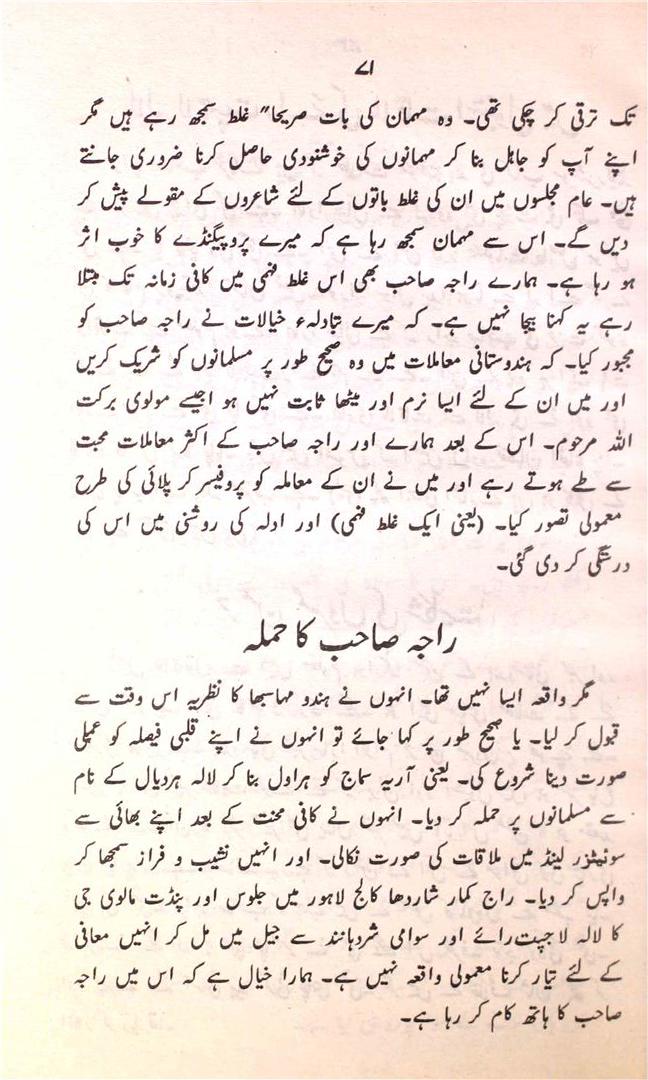 ۷۱
تک ترقی کر چکی تھی۔ وہ مہمان کی بات صریحا" غلط سمجھ رہے ہیں مگر
اپنے آپ کو جاہل بنا کر مہمانوں کی خوشنودی حاصل کرنا ضروری جانتے
ہیں۔ عام مجلسوں میں ان کی غلط باتوں کے لئے شاعروں کے مقولے پیش کر
دیں گے۔ اس سے مہمان سمجھ رہا ہے کہ میرے پروپیگنڈے کا خوب اثر
ہو رہا ہے۔ ہمارے راجہ صاحب بھی اس غلط فہمی میں کافی زمانہ تک مبتلا
رہے یہ کہنا بیجا نہیں ہے۔ کہ میرے تبادلہء خیالات نے راجہ صاحب کو
مجبور کیا۔ کہ ہندوستانی معاملات میں وہ صحیح طور پر مسلمانوں کو شریک کریں
اور میں ان کے لئے ایسا نرم اور میٹھا ثابت نہیں ہو اجیسے مولوی برکت
اللہ مرحوم۔ اس کے بعد ہمارے اور راجہ صاحب کے اکثر معاملات محبت
سے طے ہوتے رہے اور میں نے ان کے معاملہ کو پروفیسر کرپلائی کی طرح
معمولی تصور کیا۔ (یعنی ایک غلط فہمی) اور ادلہ کی روشنی میں اس کی
درستگی کر دی گئی۔
راجہ صاحب کا حملہ
مگر واقعہ ایسا نہیں تھا۔ انہوں نے ہندو مہاسبھا کا نظریہ اس وقت سے
قبول کر لیا۔ یا صحیح طور پر کہا جائے تو انہوں نے اپنے قلبی فیصلہ کو عملی
صورت دینا شروع کی۔ یعنی آریہ سماج کو ہراول بنا کر لالہ ہردیال کے نام
سے مسلمانوں پر حملہ کر دیا۔ انہوں نے کافی محنت کے بعد اپنے بھائی سے
سوئیٹزر لینڈ میں ملاقات کی صورت نکالی۔ اور انہیں نشیب و فراز سمجھا کر
واپس کر دیا۔ راج کمار شاردھا کالج لاہور میں جلوس اور پنڈت مالوی جی
کا لالہ لاجپت رائے اور سوامی شردہانند سے جیل میں مل کر انہیں معافی
کے لئے تیار کرنا معمولی واقعہ نہیں ہے۔ ہمارا خیال ہے کہ اس میں راجہ
صاحب کا ہاتھ کام کر رہا ہے۔